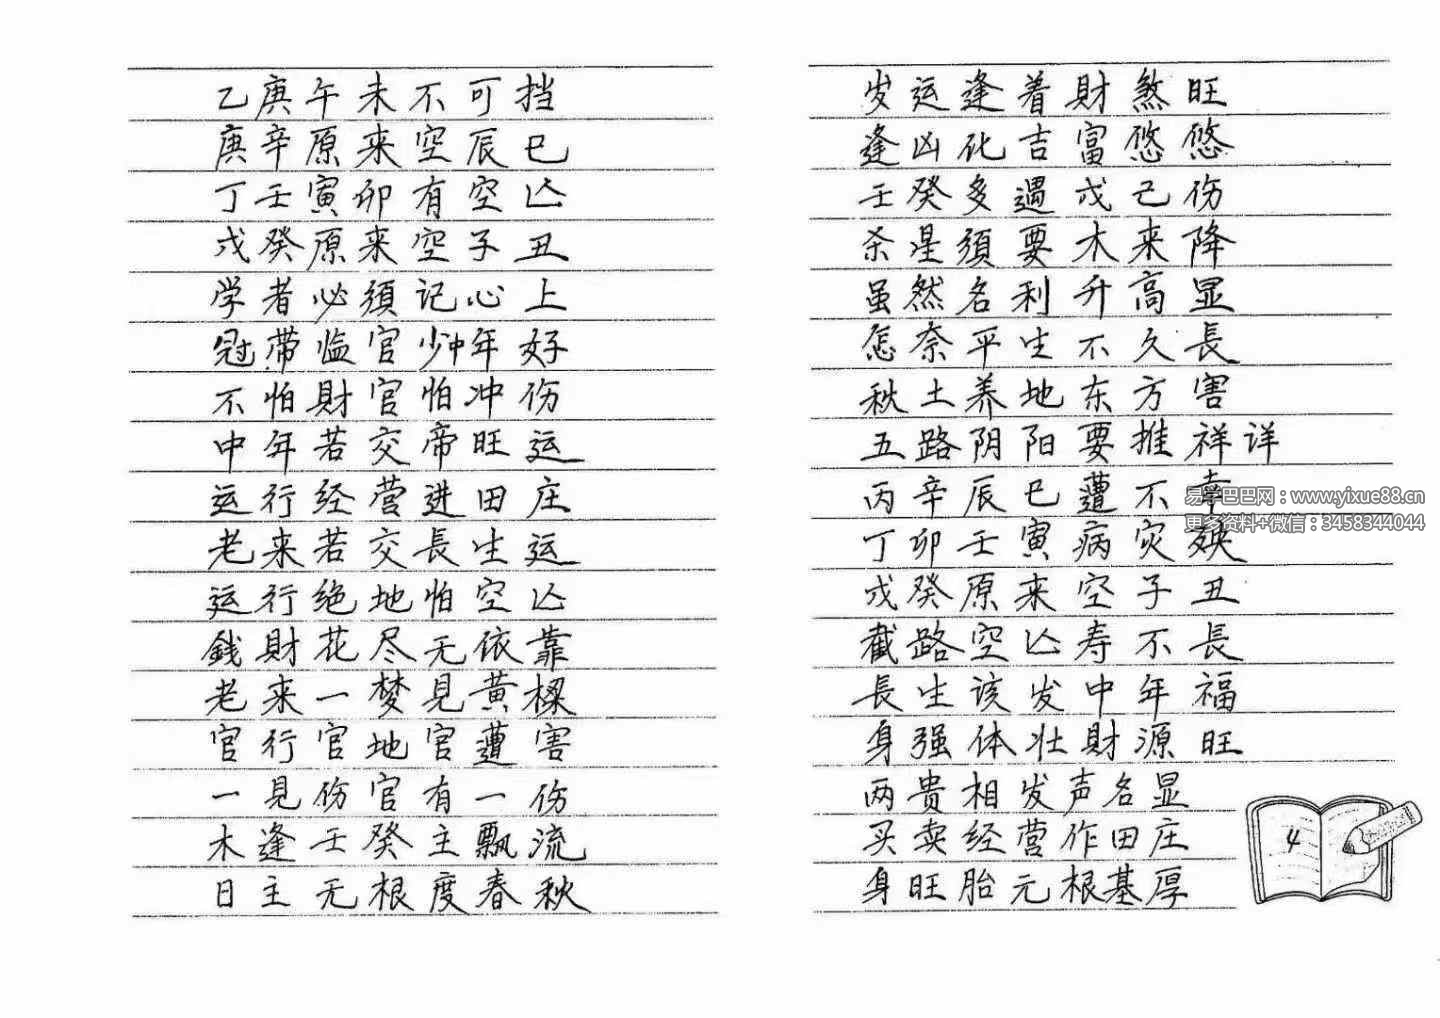 乙庚午未不可挡
庚辛原来空辰巳
丁壬寅卯有空亾
戊癸原来空子丑
学者必須记心上
冠带临官少年好
不怕財官怕冲伤
中年若交帝旺运
运行经营进田庄
老来若交長生运
运行绝地怕空亾
銭財花尽无依靠
老来一梦見黄樑
官行官地官遭害
一見伤官有一伤
木逢壬癸主飘流
日主无根度春秋
发运逢着財煞旺
逢凶化吉富悠悠
壬癸多遇戊己伤
杀星須要木来降
虽然名利升高显
怎奈平生不久長
秋土养地东方害
五路阴阳要推祥详
丙辛辰巳遭不幸
丁卯壬寅病灾殃
戊癸原来空子丑
截路空亾寿不長
長生该发中年福
身强体壮財源旺
两贵相发声名显
买卖经营作田庄
身旺胎元根基厚
4
易学巴巴网：www.yixue88.cn
更多资料+微信：3458344044